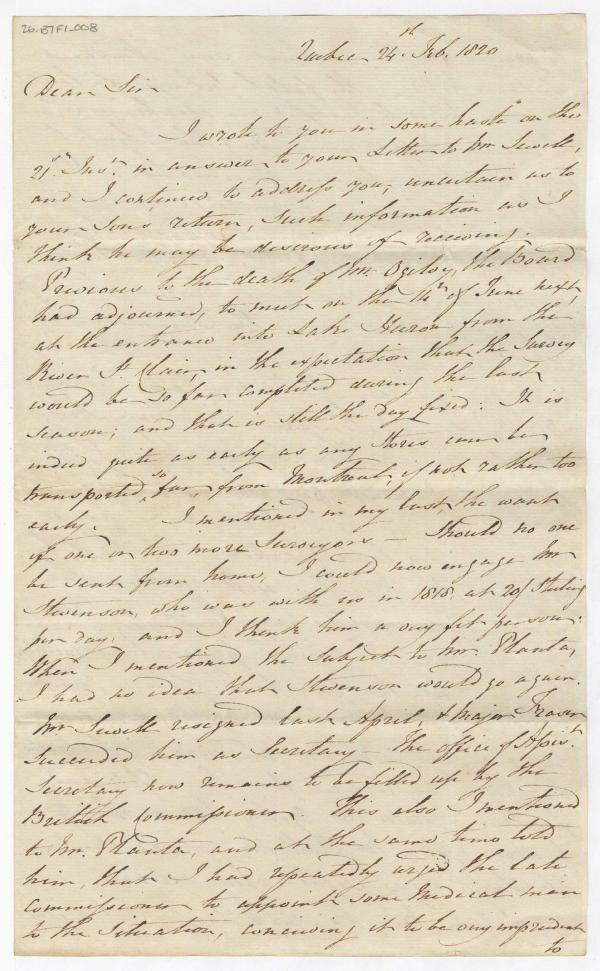 26-B7F1_008
Quebec 24th. Feb. 1820
Dear Sir
I wrote to you in some haste on the
21st. Inst. in answer to your Letter to Mr Sewell,
and I continued to address you, uncertain as to
your Sons return, Such information as I
think he may be desirous of receiving.
Previous to the death of Mr. Ogilvy, the Board
had adjourned, to meet on the 11th of June next,
at the entrance into Lake Huron from the
River St. Clair, in the expectation that the Survey
would be so far completed during the last
season; and that is still the day fixed: It is
indeed quite as early as any Stores can be
transported so far, from Montreal, if not rather too
early. I mentioned in my last, the want
of one or two more Surveyors — Should no one
be sent from home, I could now engage Mr
Stevenson, who was with us in 1818. at 20/ Sterling
per day. and I think him a very fit person:
When I mentioned the Subject to Mr. Planta,
I had no idea that Stevenson would go again.
Mr Sewell resigned last April, & Major Fraser
succeeded him as Secretary — The office of Assist.
Secretary now remains to be filled up by the
British Commissioner. This also I mentioned
to Mr. Planta, and at the same time told
him, that I had repeatedly urged the late
Commissioner to appoint some Medical man
to the Situation, conceiving it to be very imprudent
to